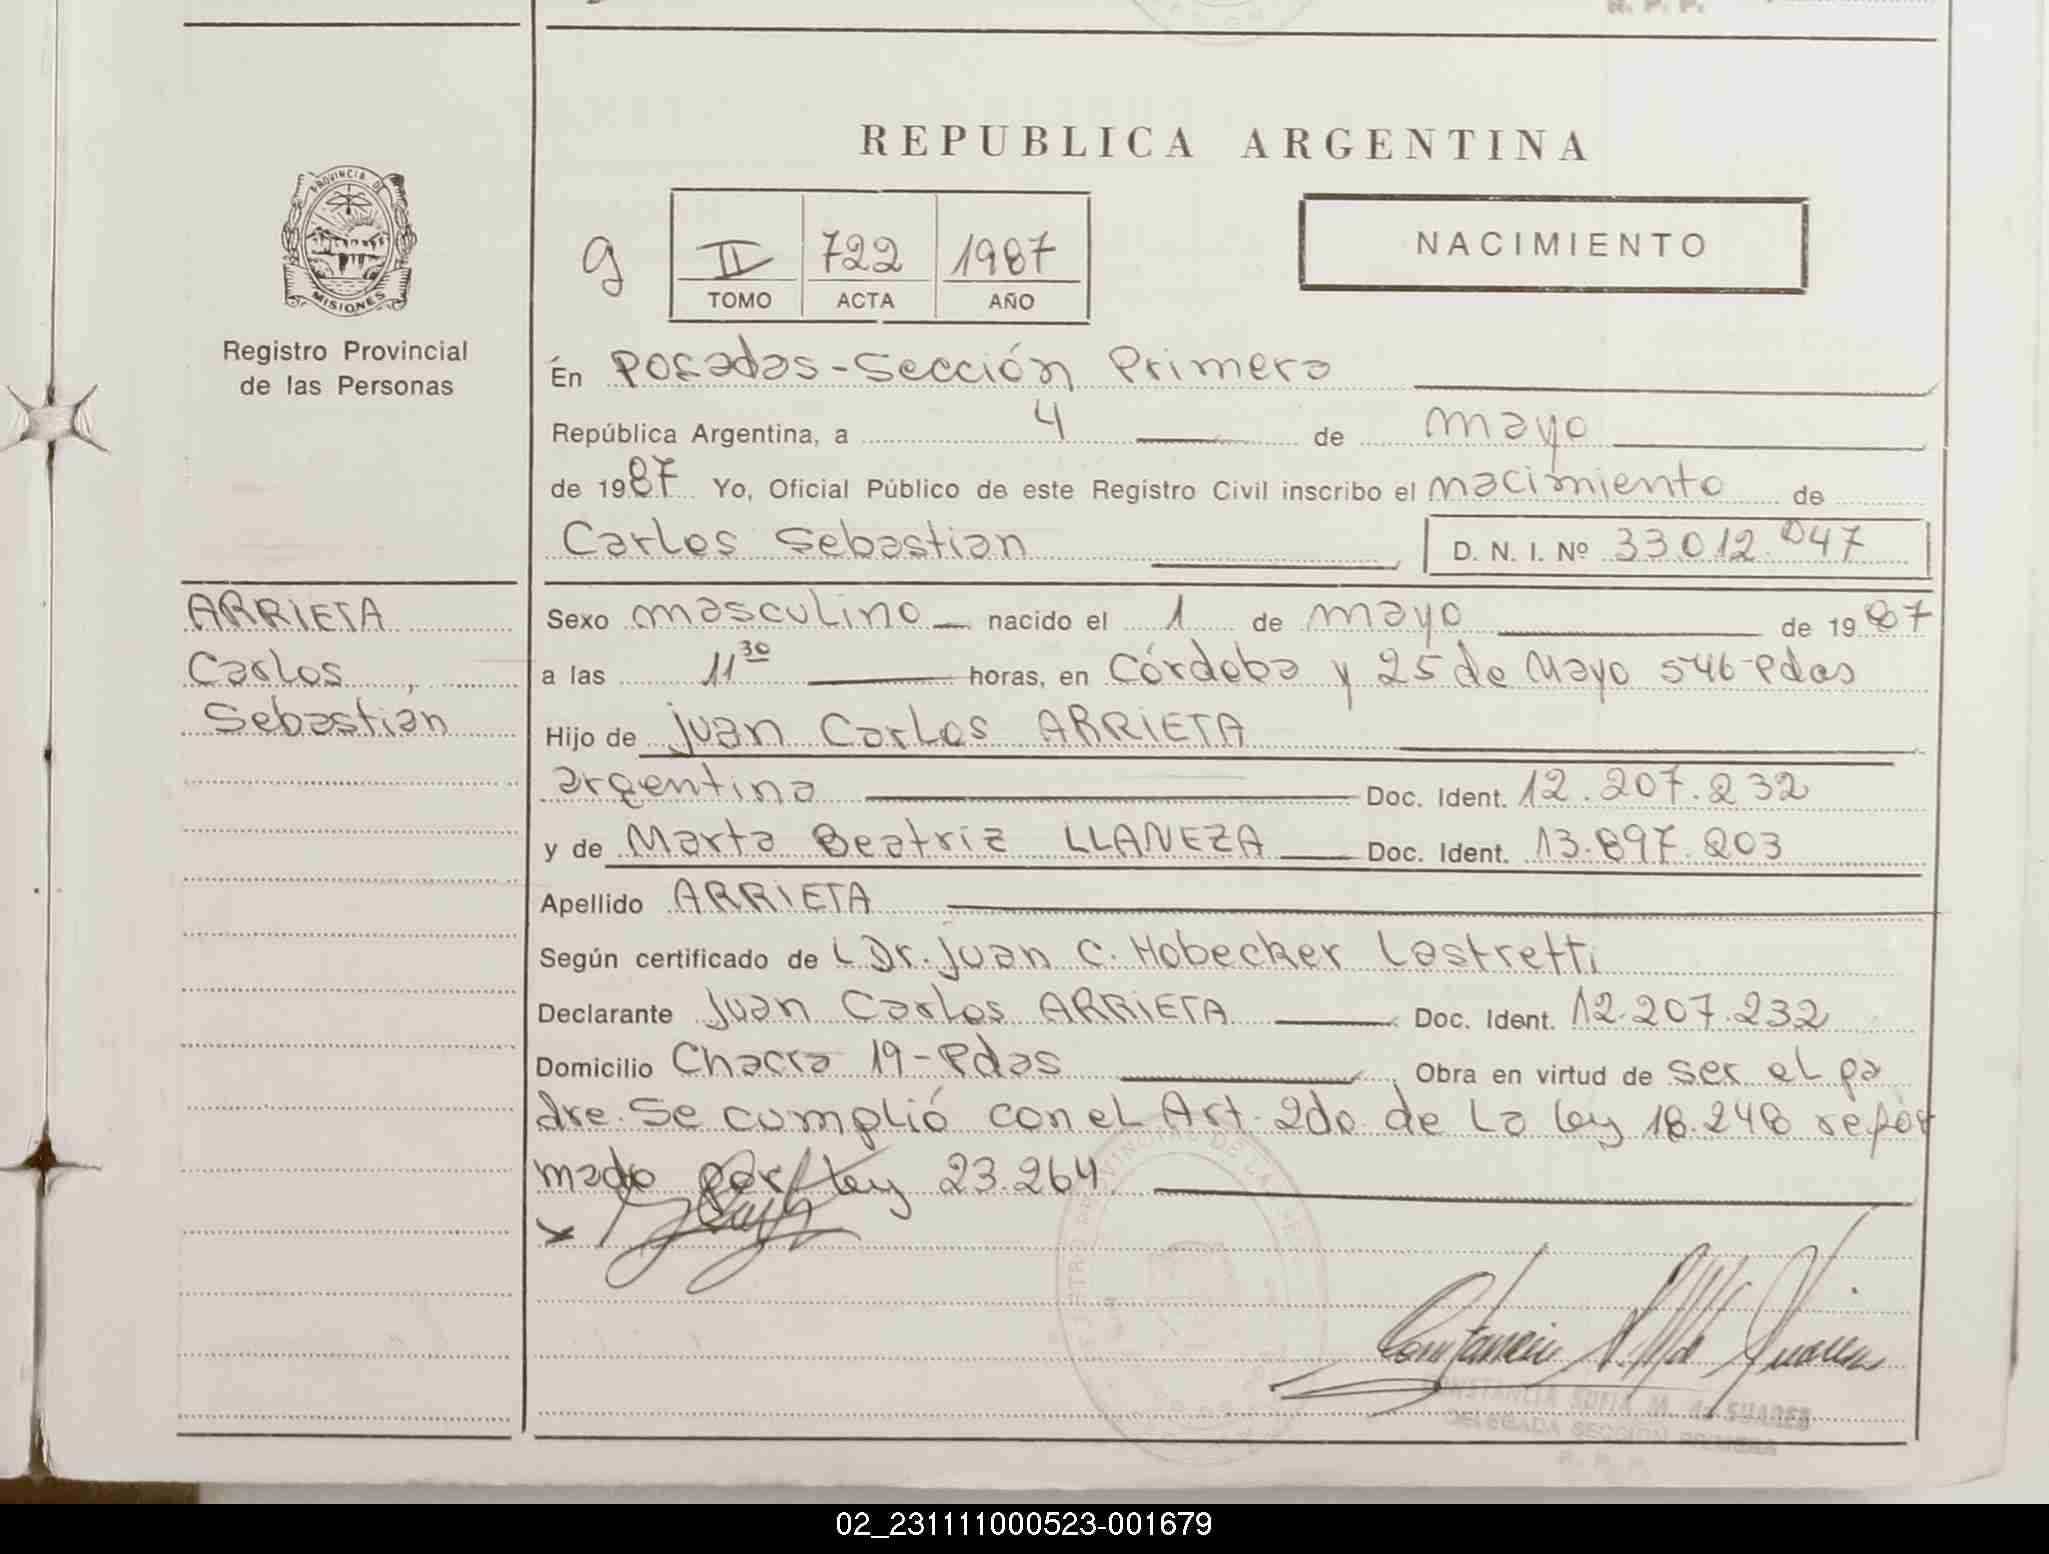 R. P. P.
REPUBLICA ARGENTINA
PROVINCIA DE
MISIONES
Registro Provincial
de las Personas
g
II 722 1987
TOMO ACTA AÑO
NACIMIENTO
En Posadas-Sección Primera
República Argentina, a 4 de mayo
de 1987 Yo, Oficial Público de este Registro Civil inscribo el nacimiento de
Carlos Sebastian D. N. I. Nº 33.012.047
ARRIETA
Carlos,
Sebastian
Sexo masculino nacido el 1 de mayo de 1987
a las 11 30 horas, en Córdoba y 25 de Mayo 546-Pdas
Hijo de Juan Carlos ARRIETA
argentina Doc. Ident. 12.207.232
y de Marta Beatriz LLANEZA Doc. Ident. 13.897.203
Apellido ARRIETA
Según certificado de L Dr. Juan C. Hobecker Lastretti
Declarante Juan Carlos ARRIETA Doc. Ident. 12.207.232
Domicilio Chacra 19-Pdas Obra en virtud de ser el pa
dre. Se cumplió con el Art. 2do. de la ley 18.248 refor
mado por ley 23.264
CONSTANCIA SOFIA M. de SUAREZ
DELEGADA SECCION PRIMERA
R. P. P.
02_231111000523-001679